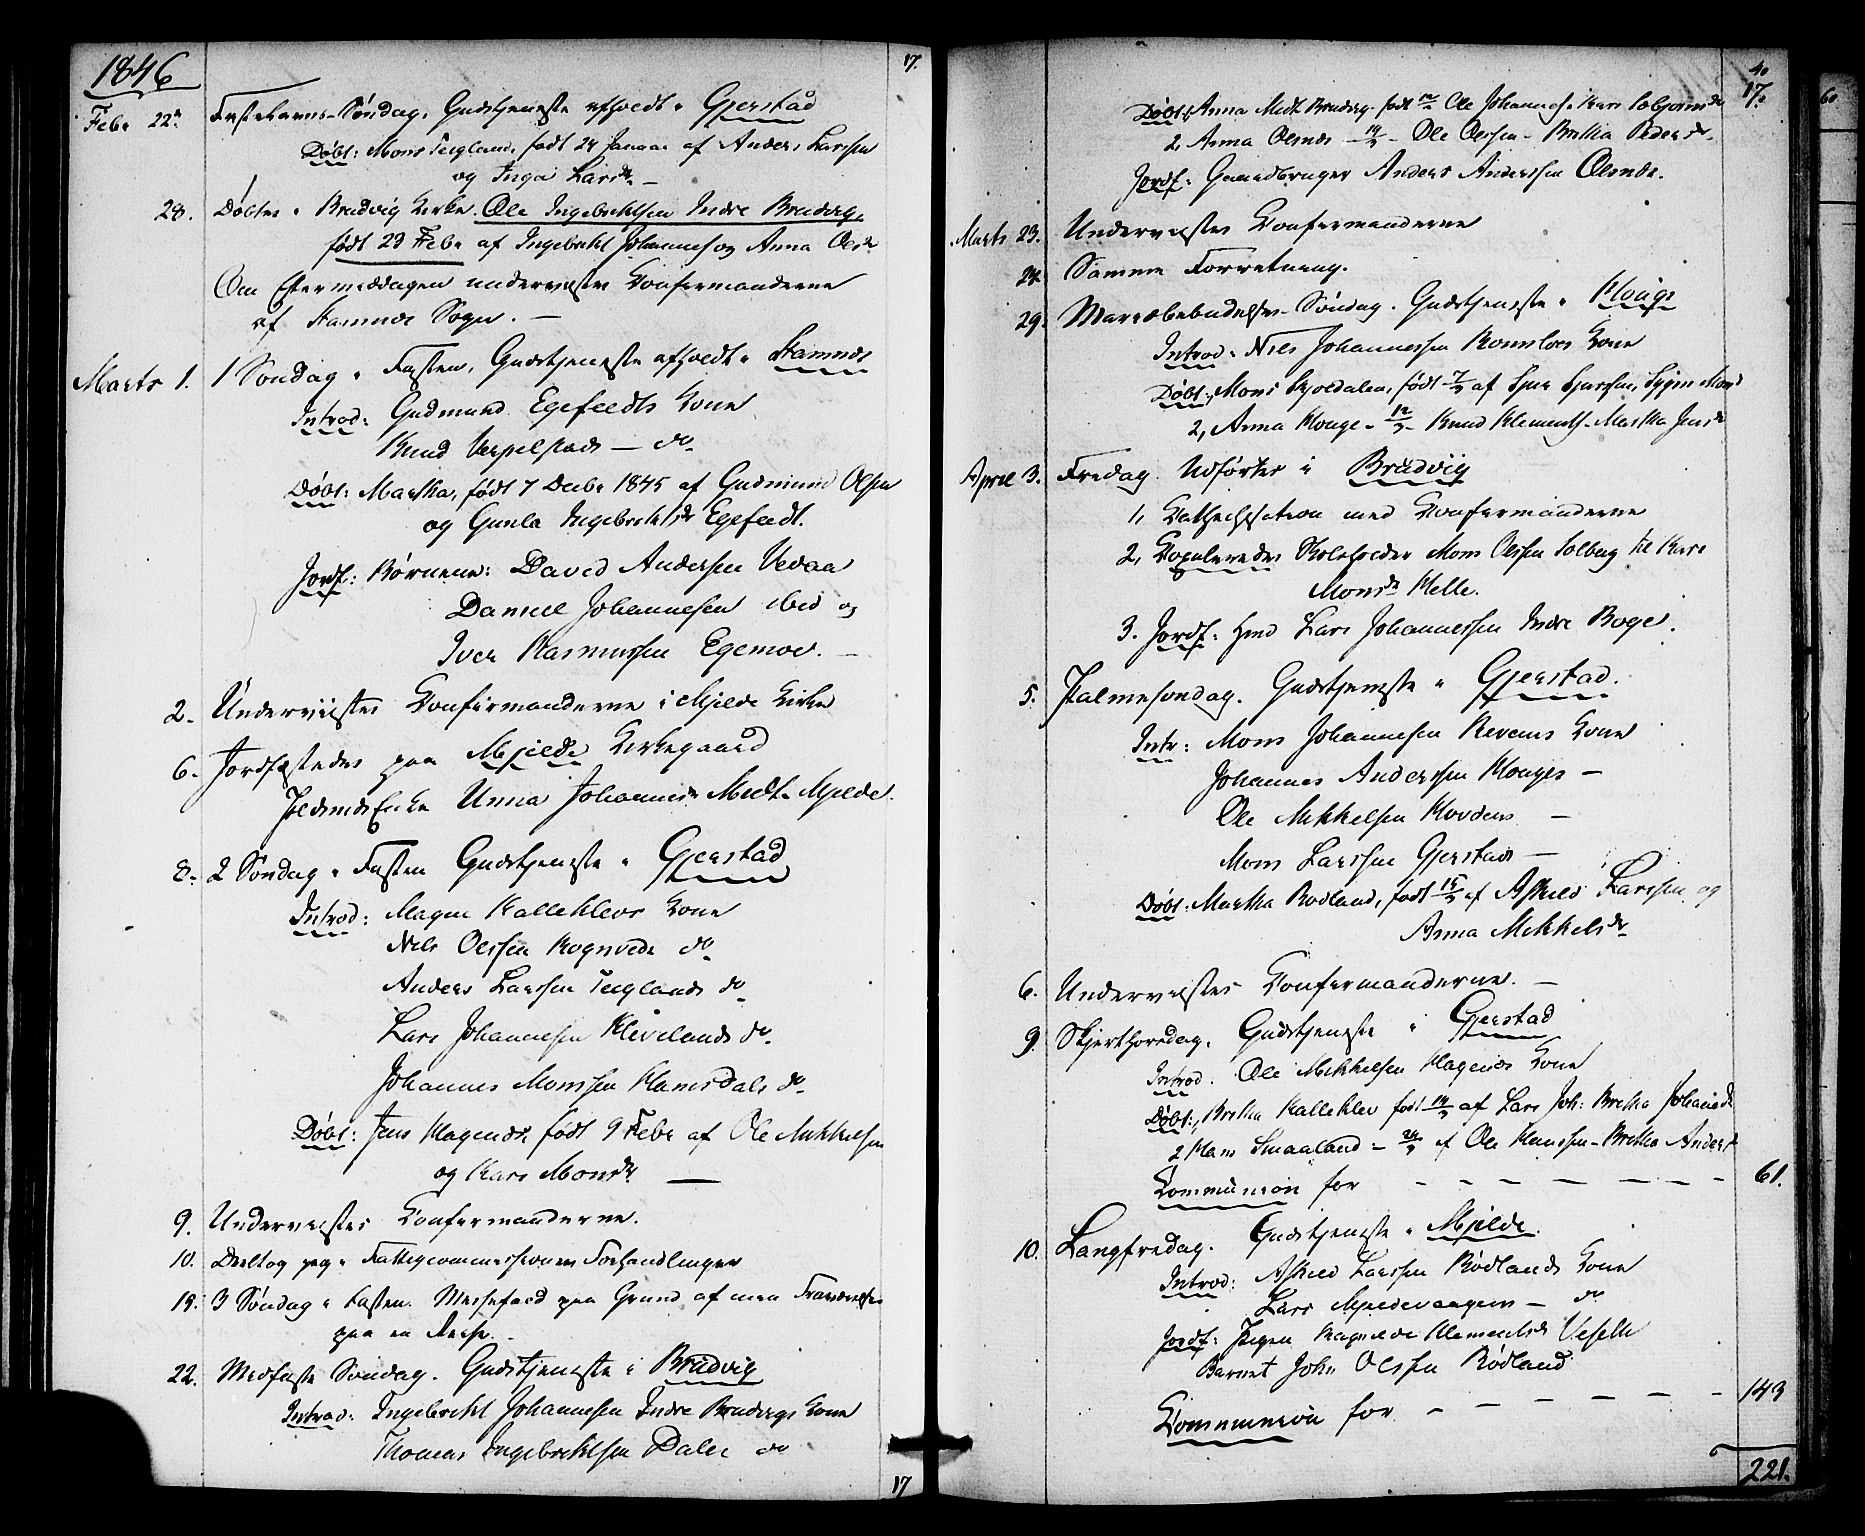 1846
17.
Febr 22de Fastelavns-Søndag, Gudstjeneste afholdt i Gjerstad
Døbt: Mons Teigland, født 24 Januar af Anders Larssen
og Inga Larsdr –
28. Døbtes i Brudvig Kirke. Ole Ingebrektsen Indre Brudvig,
født 23 Febr af Ingebrekt Johannes. og Anna Olsdr
Om Eftermiddagen underviistes Confirmanderne
af Stamnes Sogn. –
Marts 1. 1 Søndag i Fasten, Gudstjeneste afholdt i Stamnes
Introd: Gudmund Egefeldts Kone
Knud Vespelstads – do
Døbt: Martha, født 7 Decbr 1845 af Gudmund Olsen
og Gunla Ingebrektsdr Egefeldt.
Jordf: Børnene: David Andersen Vedaa
Daniel Johannesen ibid og
Iver Rasmussen Egemoe. –
2. Underviistes Confirmanderne i Mjelde Kirke
6. Jordfæstedes paa Mjelde Kirkegaard
Enke Unna Johannesdr Midt-Mjelde.
8. 2 Søndag i Fasten Gudstjeneste i Gjerstad
Introd: Magne Kalleklevs Kone
Nils Olssen Rognvede do
Anders Larssen Teiglands do
Lars Johannesen Klevelands do
Johannes Monssen Hansdals do
Døbt: Jens Hagenæs, født 9 Febr af Ole Mikkelsen
og Kari Monsdr –
9. Underviistes Confirmanderne.
10. Deeltog jeg i Fattigcommissionens Forhandlinger
15. 3 Søndag i Fasten. Messefald paa Grund af min Fraværelse
paa en Reise.
22. Midfaste Søndag. Gudstjeneste i Brudvig
Introd: Ingebrekt Johannesen Indre Brudvigs Kone
Thomas Ingebrektsen Dale do
17
17.
Døbt: 1, Anna Midt Brudvig født Ole Johannes. Kari
2, Anna Olsnes – Ole Olssen – Britha Pedersdr.
Jordf: Gaardbruger Anders Anderssen Olsnes.
Marts 23. Underviistes Confirmanderne
24. Samme Forretning.
29. Mariæbebudelses-Søndag. Gudstjeneste i Houge
Introd: Nils Johannessen Romsloes Kone
Døbt: 1, Mons Skjoldalen, født af Sjur Sjurssen, Mons
2, Anna Houge – Knud Klements. Martha Jensdr
April 3. Fredag. Udførtes i Brudvig
1, Cathechisation med Confirmanderne
2, Copuleredes Skoleholder Mons Olssen Solberg til Kari
Monsdr Helle.
3. Jordf: Lars Johannessen Indre Boge.
5. Palmesøndag. Gudstjeneste i Gjerstad.
Intr: Mons Johannesen Revems Kone
Johannes Anderssen Houges –
Ole Mikkelsen Hovdens –
Mons Larssen Gjerstads –
Døbt: Martha Rødland, født 15/3 af Askild Larssen og
Anna Mikkelsdr
6. Underviistes Confirmanderne. –
9. Skjertorsdag. Gudstjeneste i Gjerstad
Introd. Ole Mikkelsen Hagenæs Kone
Døbt: 1, Britha Kalleklev født af Lars Joh: Britha Johansdr
2 Hans Smaaland – af Ole Hanssen – Britha Andersd
Communion for – – – – – – – 61.
10. Langfredag. Gudstjeneste i Mjelde.
Introd: Askild Larssen Rødlands Kone
Lars Mjeldevaagens – do
Jordf: Pigen Ragnilde Klementsdr Veselh
Barnet John Olssen Rødland
Communion for – – – – – 143
221.